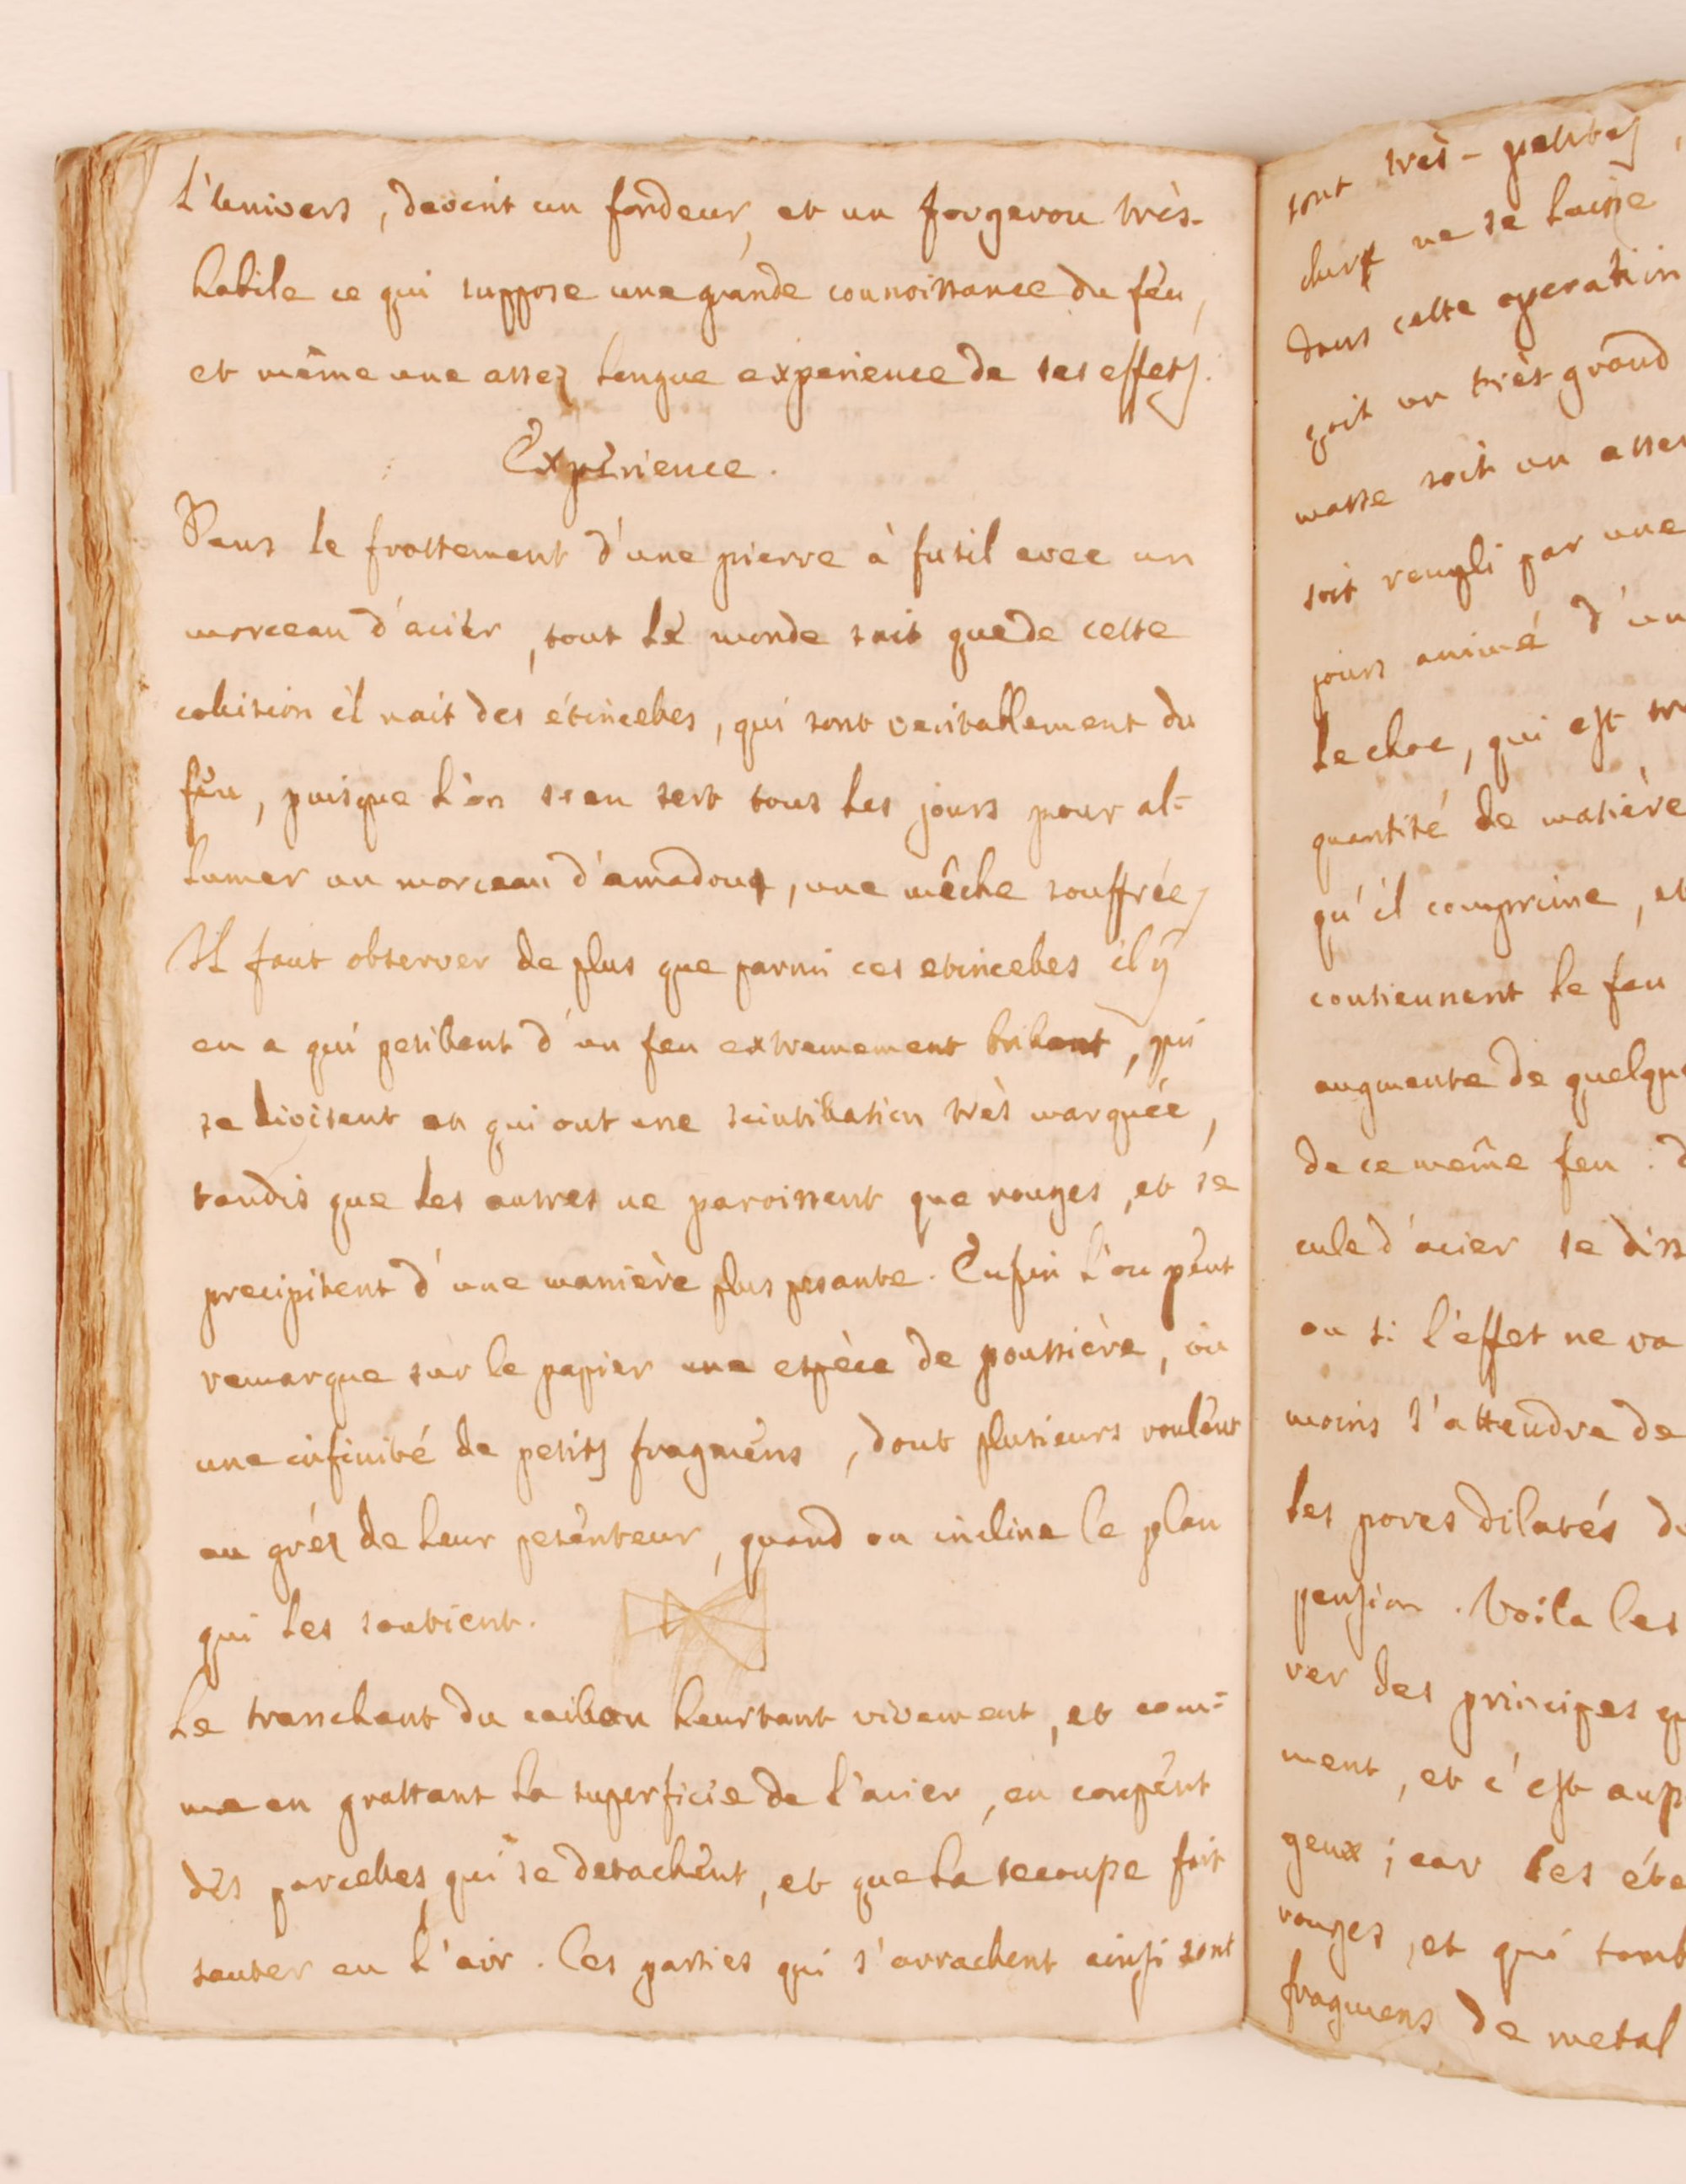 L'univers, devint un fondeur, et un forgeron très-
habile ce qui suppose une grande connoissance du feu,
et même une assez longue experience de ses effets.
Expérience.
Dans le frottement d'une pierre à fusil avec un
morceau d'acier, tout le monde sait que de cette
colision il nait des étincelles, qui sont veritablement du
feu, puisque l'on s'en sert tous les jours pour al=
lumer un morceau d'amadou, une mêche souffrée,
Il faut observer de plus que parmi ces etincelles il y
en a qui petillent d'un feu extremement brillant, qui
se divisent et qui ont une scintillation très marquée,
tandis que les autres ne paroissent que rouges, et se
precipitent d'une manière plus pesante. Enfin l'on peut
remarque sur le papier une espèce de poussière, ou
une infinité de petits fragmens, dont plusieurs roulent
au gréz de leur pesanteur, quand on incline le plan
qui les soutient.
Le tranchant du caillou heurtant vivement, et com=
me en grattant la superficie de l'acier, en coupent
des parcelles qui se detachent, et que la secoupe fait
sauter en l'air. Ces parties qui s'arrachent ainsi sont
sont très-petites,
dure ne se laisse
dans cette operation
soit un très-grand
masse soit un asse
soit rempli par une
jours animé d'un
Le choc, qui est tr
quantité de matière
qu'il comprime, et
contiennent le feu
augmente de quelque
de ce même feu. d
cule d'acier se diss
ou si l'effet ne va
moins s'attendre de
Les pores dilatés de
pension. Voila les
ver des principes qu
ment, et c'est aup
geux; car les éte
rouges, et qui tomb
fragmens de metal